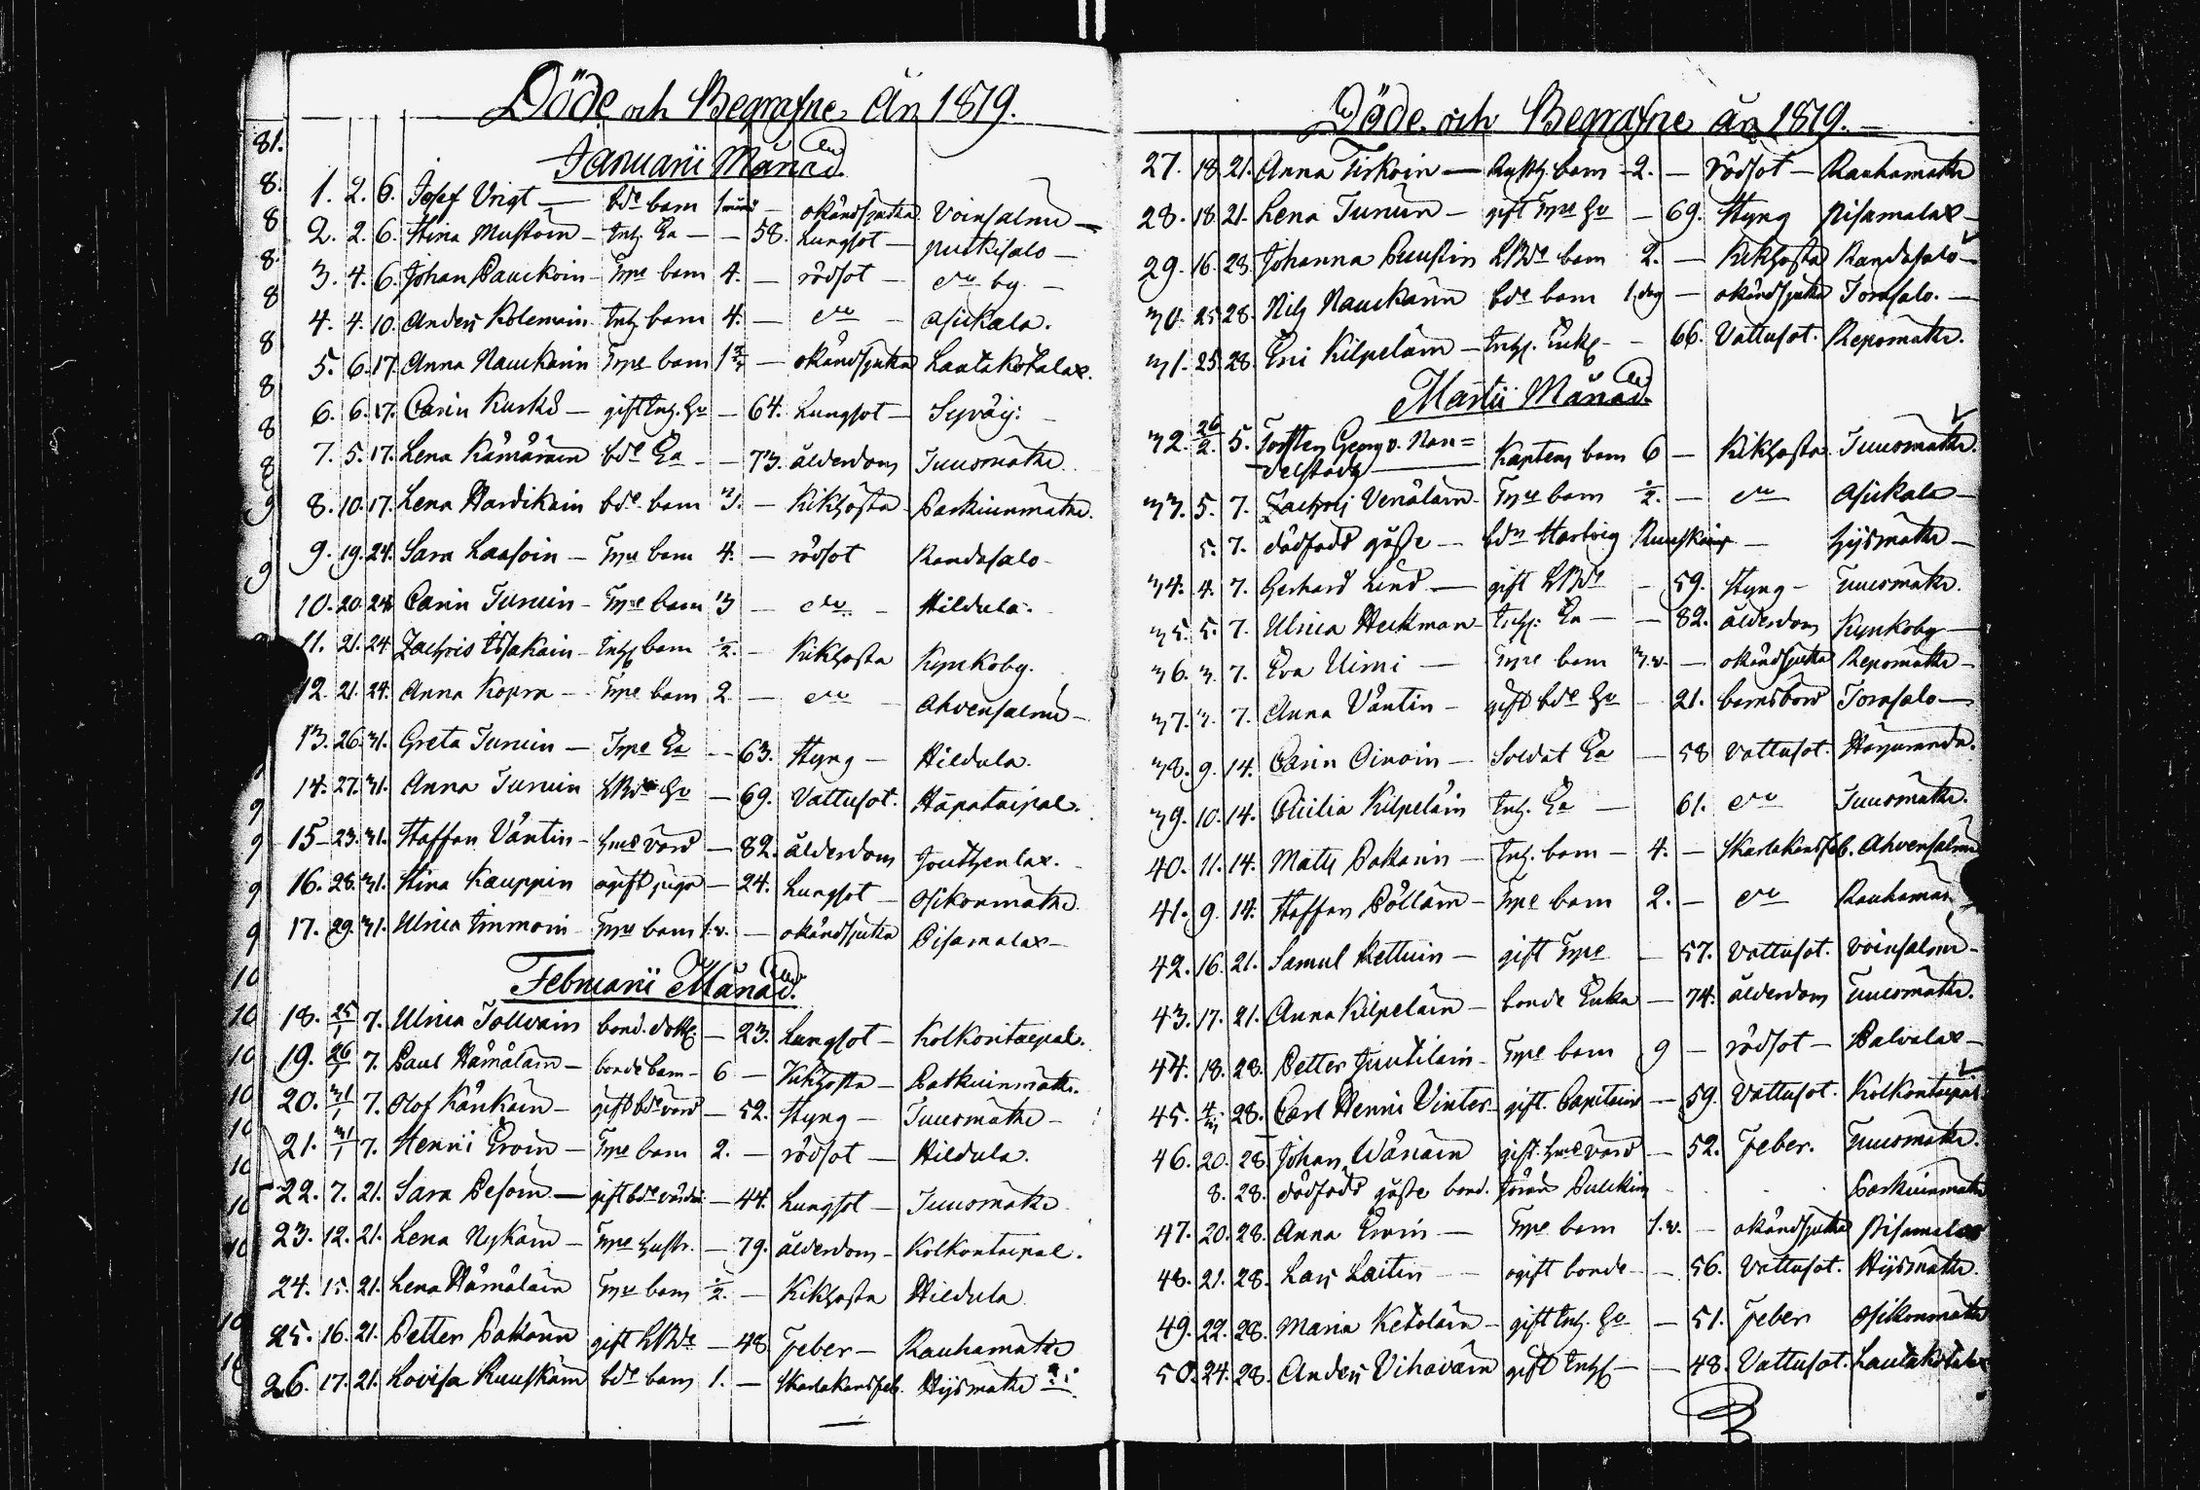 Döde och Begrafne År 1819.
Januarii Månad.
1. 2. 6. Josef Vrigt — bde barn 1 mån — okänd sjukd. Voinsalmi —
2. 2. 6. Stina Mustoin — Inh. Ea — 58. Lungsot — Putkisalo —
3. 4. 6. Johan Pauckoin — Tpre barn 4. — rödsot — do by —
4. 4. 10. Anders Kolemain Inh barn 4. — do — Asickala.
5. 6. 17. Anna Nauckarin Tpre barn 1 — okänd sjukd Laukakotalax.
6. 6. 17. Carin Kurki — gift Inh. Hu — 64. Lungsot — Syväij: —
7. 5. 17. Lena Kämäräin bde Ea — 73. ålderdom Juusmäthe
8. 10. 17. Lena Hardikain bde barn 3. — Kikhosta Parkuinmäthe.
9. 19. 24. Sara Laasoin — Tpre barn 4. — rödsot Randasalo —
10. 20. 24. Carin Turuin — Tpre barn 3 — do — Hildula.
11. 21. 24. Zachris Issakain — Inh barn ½. — Kikhosta Kynkoby.
12. 21. 24. Anna Kopra — Tpre barn 2 — do — Ahvensalmi —
13. 26. 31. Greta Turuin — Tpre Ea — 63. Styng — Hildula.
14. 27. 31. Anna Turuin LBde Hu — 69. Vattusot. Häpataipal.
15. 23. 31. Staffan Väntin — värd — 82. ålderdom Joutzenlax.
16. 28. 31. Stina Kauppin ogift piga — 24. Lungsot — Osikonmäthe.
17. 29. 31. Ulrica Immoin — Tpre barn 1.v. — okänd sjukd Pisamalax —
Februarii Månad.
18. 25/1 7. Ulrica Tolvain bond. dott. — 23. Lungsot — Kolkontaipal.
19. 26/1 7. Paul Hämäläin — bonde barn — 6 — Kikhosta — Parkuinmäthe.
20. 31/1 7. Olof Känkäin — gift bde värd — 52. Styng — Juusmäthe —
21. 31/1 7. Henric Ervin — Tpre barn 2. — rödsot — Hildula.
22. 7. 21. Sara Pesoin — gift bde värdin — 44. Lungsot — Juusmäthe
23. 12. 21. Lena Nykäin — Tpre hustr. — 79. ålderdom — Kolkontaipal.
24. 15. 21. Lena Hämäläin Tpre barn ½. — Kikhosta Hildula
25. 16. 21. Petter Pakarin gift LBde — 48 Feber — Rauhamäthe
26. 17. 21. Lovisa Ruuskain bde barn 1. — Skarlakansfeb. Hijsmäthe
Döde och Begrafne år 1819.
27. 18. 21. Anna Tirkoin — barn 2. — rödsot — Rauhamäthe
28. 18. 21. Lena Turuin — gift Tpre Hu — 69. Styng Pisamalax —
29. 16. 28. Johanna Puustin LBde barn 2. — Kikhosta Randasalo —
30. 25. 28. Nils Nauckarin bde barn 1 dag — okänd sjukd Torasalo. —
31. 25. 28. Eric Kilpeläin — Inh. Enkl. — 66. Vattusot. Repomäthe.
Martii Månad.
32. 26/2. 5. Torsten Georg v. Nan=
delstädt — Kaptens barn 6 — Kikhosta Juusmäthe.
33. 5. 7. Zachris Venäläin — Tpre barn ½. — do Asickala —
5. 7. dödfödd gosse — bdn Hartvig Ruuskain — Hijsmäthe —
34. 4. 7. Gerhard Lind — gift LBde — 59. Styng — Juusmäthe.
35. 5. 7. Ulrica Heckman — Inh. Ea — 82. ålderdom Kynkoby —
36. 3. 7. Eva Uimi — Tpre barn 3.v. — okänd sjukd Repomäthe —
37. 3. 7. Anna Väntin — gift bde Hu — 21. barnsbörd Torasalo —
38. 9. 14. Carin Oinoin — Soldat Ea — 58 Vattusot. Harjuranda.
39. 10. 14. Cecilia Kilpeläin Inh. Ea — 61. do Juusmäthe.
40. 11. 14. Matts Pakarin — Inh. barn — 4. — Skarlakansfeb. Ahvensalmi
41. 9. 14. Staffan Pölläin — Tpre barn 2. — do Rauhamä
42. 16. 21. Samul Kettuin — gift Tpre — 57. Vattusot. Voinsalmi —
43. 17. 21. Anna Kilpeläin — bonde Enka — 74. ålderdom Juusmäthe.
44. 18. 28. Petter Juutilain — Tpre barn 9 — rödsot — Palvalax —
45. 28. Carl Henric Vinter — gift. Capitain — 59. Vattusot. Kolkontaipal
46. 20. 28. Johan Wänäin gift värd — 52. Feber. Juusmäthe.
8. 28. dödfödd gosse bond. Jöran Pulckin Parkuinmäthe
47. 20. 28. Anna Ervin — Tpre barn 1.v. — okänd sjukd Pisamalax
48. 21. 28. Lars Laitin — ogift bonde — 56. Vattusot. Hijsmäthe.
49. 22. 28. Maria Ketolain — gift Inh. Hu — 51. Feber Osikonmäthe
50. 24. 28. Anders Vihavain gift Inh — 48. Vattusot. Laukakotalax